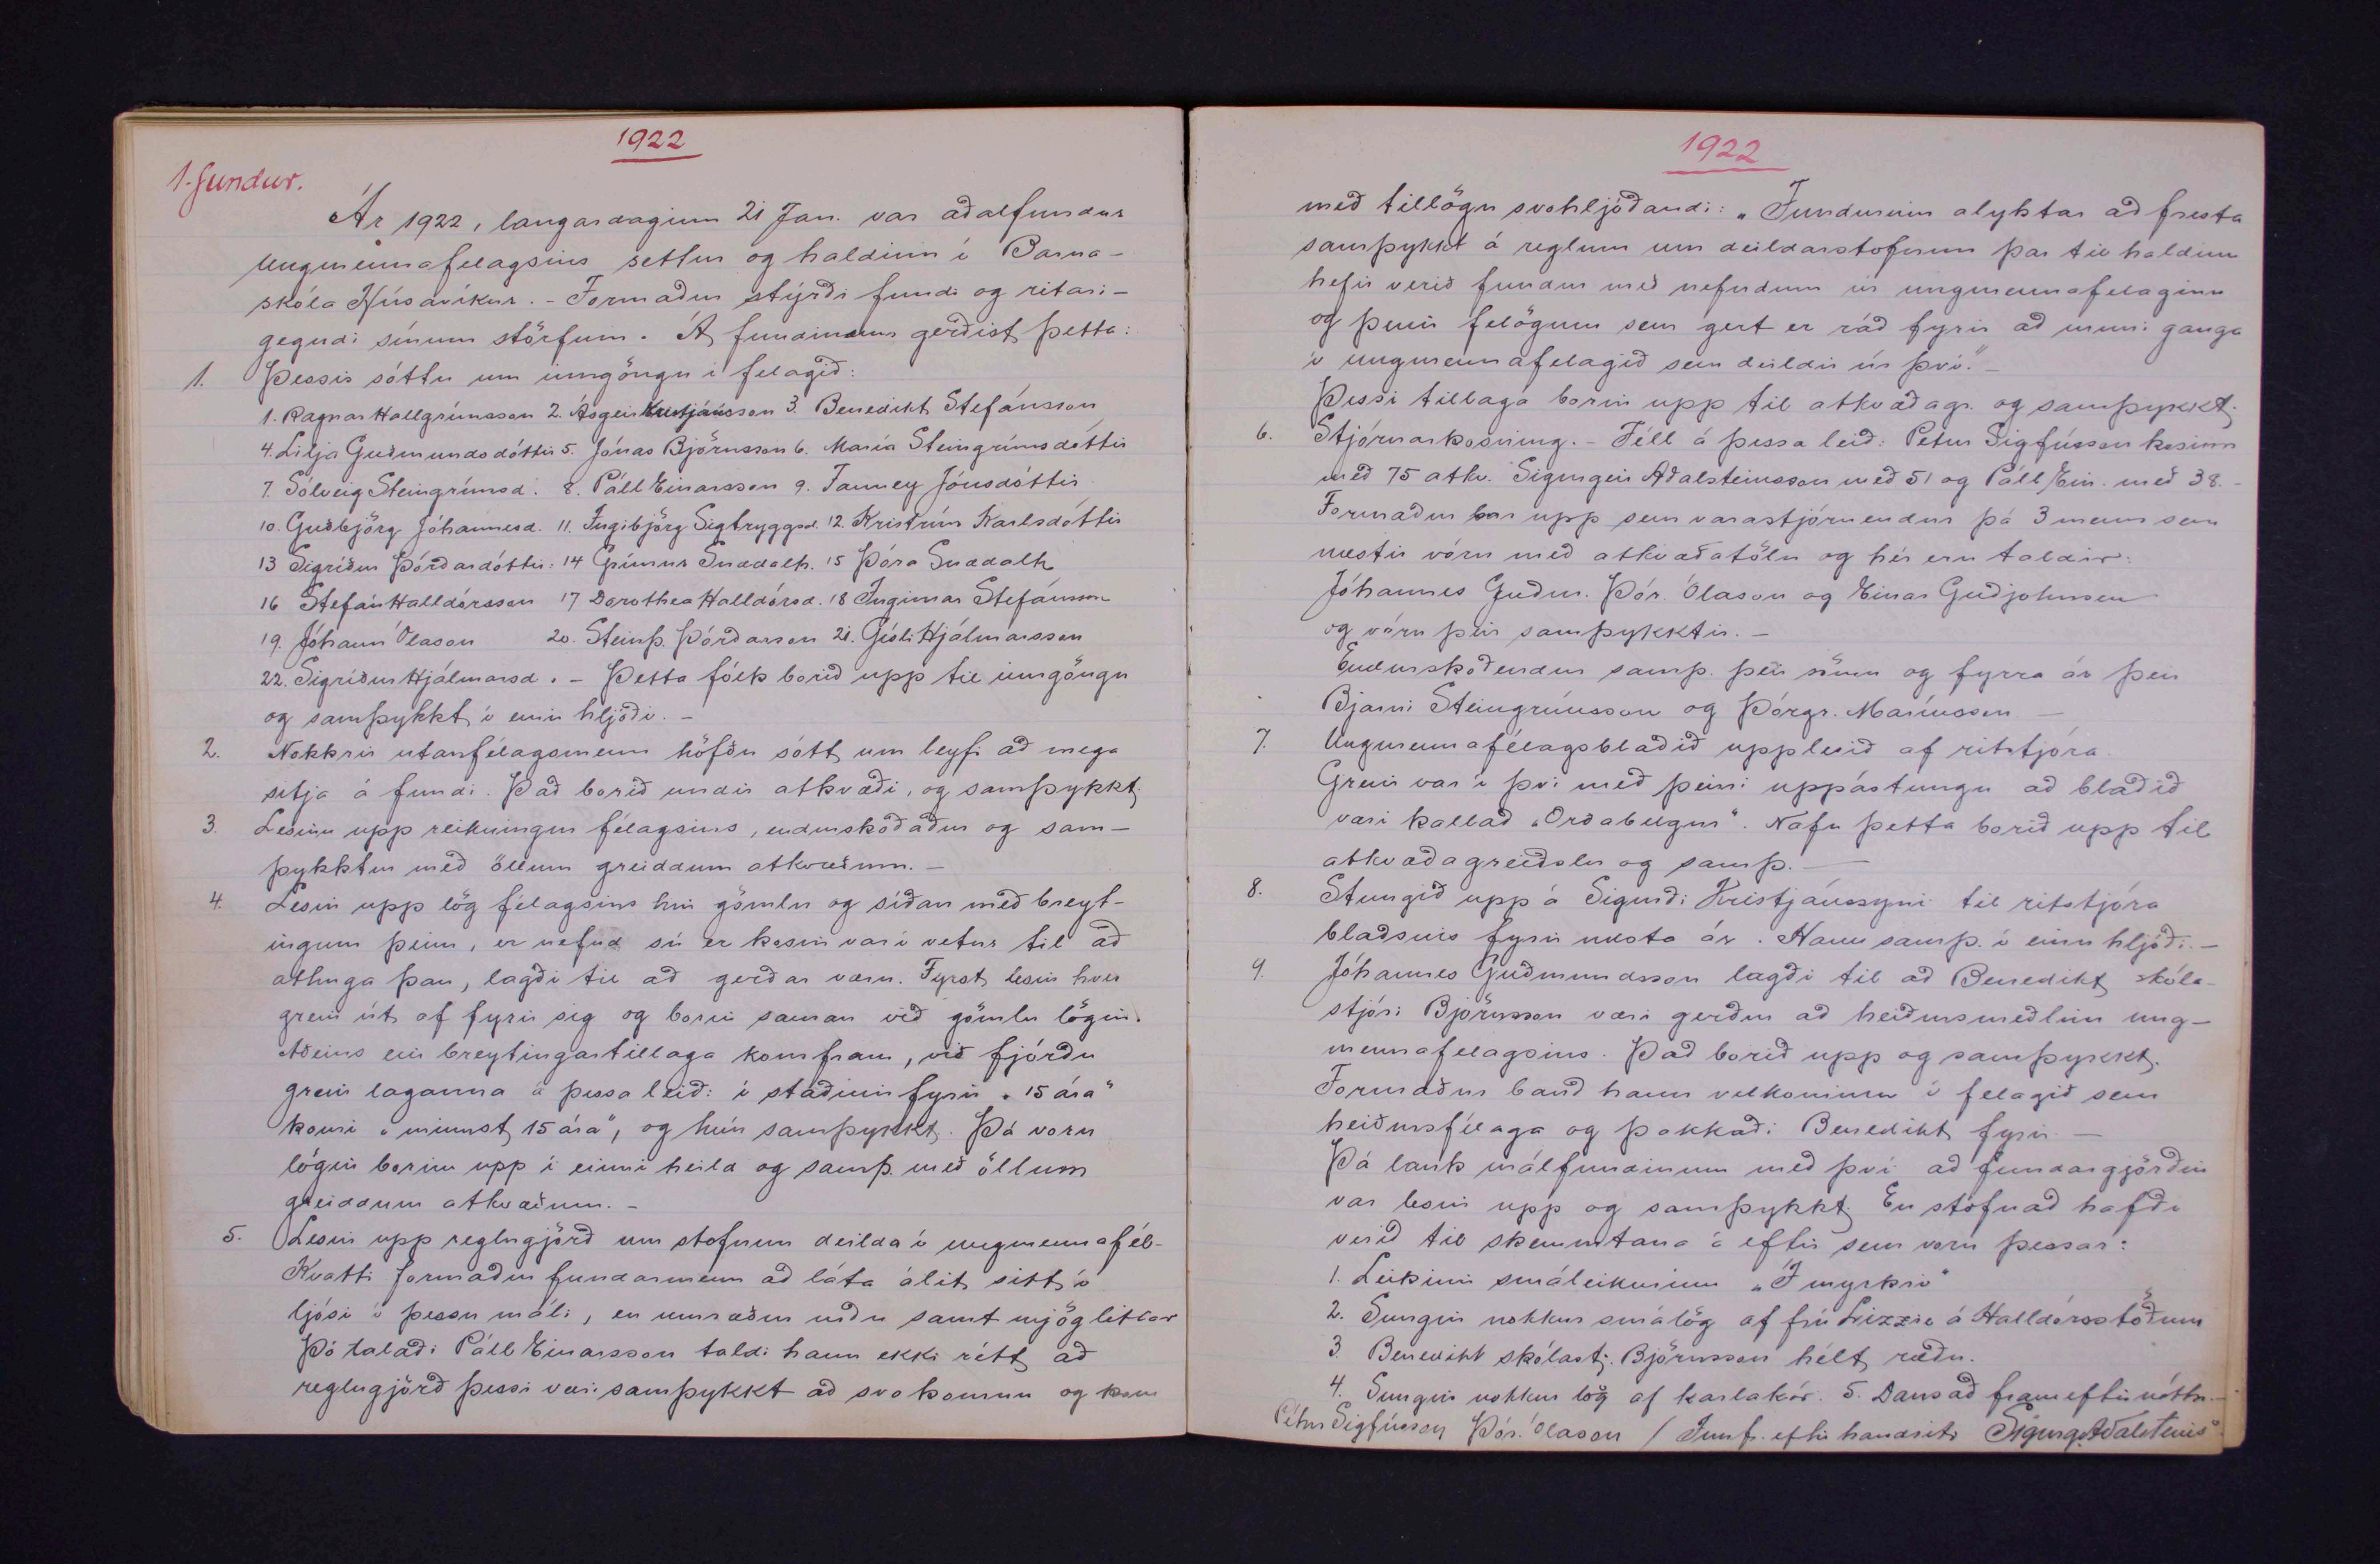 1922
1. fundur.
Ár 1922, laugardaginn 21 Jan. var aðalfundur
Ungmennafelagsins settur og haldinn í Barna-
skóla Húsavíkur. - Formaður stýrði fundi og ritari -
gegndi sínum störfum. Á fundinum gerðist þetta:
1. Þessir sóttu um inngöngu í felagið:
1. Ragnar Hallgrímsson 2. Ásgeir Kristjánsson 3. Benedikt Stefánsson
4. Lilja Guðmundsdóttir 5. Jónas Björnsson 6. María Steingrímsdóttir
7. Sólveig Steingrímsd. 8. Páll Einarsson 9. Fanney Jónsdóttir
10. Guðbjörg Jóhannesd. 11. Ingibjörg Sigtryggsd. 12. Kristrún Karlsdóttir
13 Sigríður Þórðardóttir: 14 Grímur Snædal 15 Þóra Snædal
16 Stefán Halldórsson 17 Dorothea Halldórsd. 18 Ingimar Stefánsson
19. Jóhann Ólason 20. Steinþ. Þórðarson 21. Gísli Hjálmarsson
22. Sigríður Hjálmarsd. - Þetta fólk borið upp til inngöngu
og samþykkt í einu hljóði. -
2. Nokkrir utanfélagsmenn höfðu sótt um leyfi að mega
sitja á fundi. Það borið undir atkvæði, og samþykkt.
3. Lesinn upp reikningur félagsins, endurskoðaður og sam-
þykktur með öllum greiddum atkvæðum. -
4. Lesin upp lög félagsins hin gömlu og síðan með breyt-
ingum þeim, er nefnd sú er kosin var í vetur til að
athuga þau, lagði til að gerðar væru. Fyrst lesin hver
grein út af fyrir sig og borin saman við gömlu lögin.
Aðeins ein breytingartillaga kom fram, við fjórðu
grein laganna á þessa leið: í staðinn fyrir „15 ára"
komi „minnst 15 ára", og hún samþykkt. Þá voru
lögin borin upp í einni heild og samþ. með öllum
greiddum atkvæðum. -
5. Lesin upp reglugjörð um stofnun deilda í ungmennafél-
Kvatti formaður fundarmenn að láta álit sitt í
ljósi í þessu máli, en umræður urðu samt mjög litlar
Þó talaði Páll Einarsson taldi hann ekki rétt að
reglugjörð þessi væri samþykkt að svo komnu og kom
1922
með tillögu svohljóðandi: „Fundurinn alyktar að fresta
samþykkt á reglum um deildarstofnun þar til haldinn
hefir verið fundur með nefndum úr ungmennafelaginu
og þeim felögum sem gert er ráð fyrir að muni ganga
í ungmennafelagið sem deildir úr því." -
Þessi tillaga borin upp til atkvæðagr. og samþykkt.
6. Stjórnarkosning. - Féll á þessa leið: Petur Sigfússon kosinn
með 75 atkv. Sigurgeir Aðalsteinsson með 51 og Páll Ein. með 38. -
Formaður bar upp sem varastjórnendur þá 3 menn sem
næstir vóru með atkvæðatölu og hér eru taldir:
Jóhannes Guðm. Þór. Ólason og Einar Guðjohnsen
og vóru þeir samþykktir. -
Endurskoðendur samþ. þeir sömu og fyrra ár þeir
Bjarni Steingrímsson og Þórgr. Maríusson -
7. Ungmennafélagsblaðið upplesið af ritstjóra.
Grein var í því með þeirri uppástungu að blaðið
væri kallað „Orðabelgur". Nafn þetta borið upp til
atkvæðagreiðslu og samþ. -
8. Stungið upp á Sigurði Kristjánssyni til ritstjóra
blaðsins fyrir næsta ár. Hann samþ. í einu hljóði. -
9. Jóhannes Guðmundsson lagði til að Benedikt skóla-
stjóri Björnsson væri gerður að heiðursmeðlim ung-
mennafelagsins. Það borið upp og samþykkt.
Formaður bauð hann velkominn í felagið sem
heiðursfélaga og þakkaði Benedikt fyrir -
Þá lauk málfundinum með því að fundargjörðin
var lesin upp og samþykkt. En stofnað hafði
verið til skemmtana á eftir sem voru þessar:
1. Leikinn smáleikurinn „Í myrkri"
2. Sungin nokkur smálög af frú Lizzie á Halldórsstöðum
3. Benedikt skólastj. Björnsson hélt ræðu.
4. Sungin nokkur lög af karlakór. 5. Dansað fram eftir nóttu. -
Pétur Sigfússon Þór. Ólason / Innf. eftir handriti Sigurg. Aðalsteins